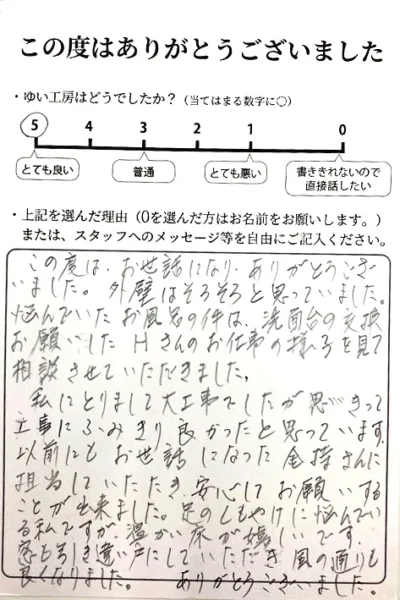 この度はありがとうございました
・ゆい工房はどうでしたか？（当てはまる数字に○）
5 4 3 2 1 0
とても良い 普通 とても悪い 書ききれないので
直接話したい
・上記を選んだ理由（0を選んだ方はお名前をお願いします。）
または、スタッフへのメッセージ等を自由にご記入ください。
この度は、お世話になり、ありがとうござ
いました。外壁はそろそろと思っていました。
悩んでいたお風呂の件は、洗面台の交換
お願いした Hさんのお仕事の様子を見て
相談させていただきました。
私にとりまして大工事でしたが思いきって
工事にふみきり良かったと思っています。
以前にもお世話になった金持さんに
担当していただき、安心してお願いする
ことが出来ました。足のしもやけに悩んでい
る私ですが、温かい床が嬉しいです。
窓も引き違い戸にしていただき風の通りも
良くなりました。 ありがとうございました。